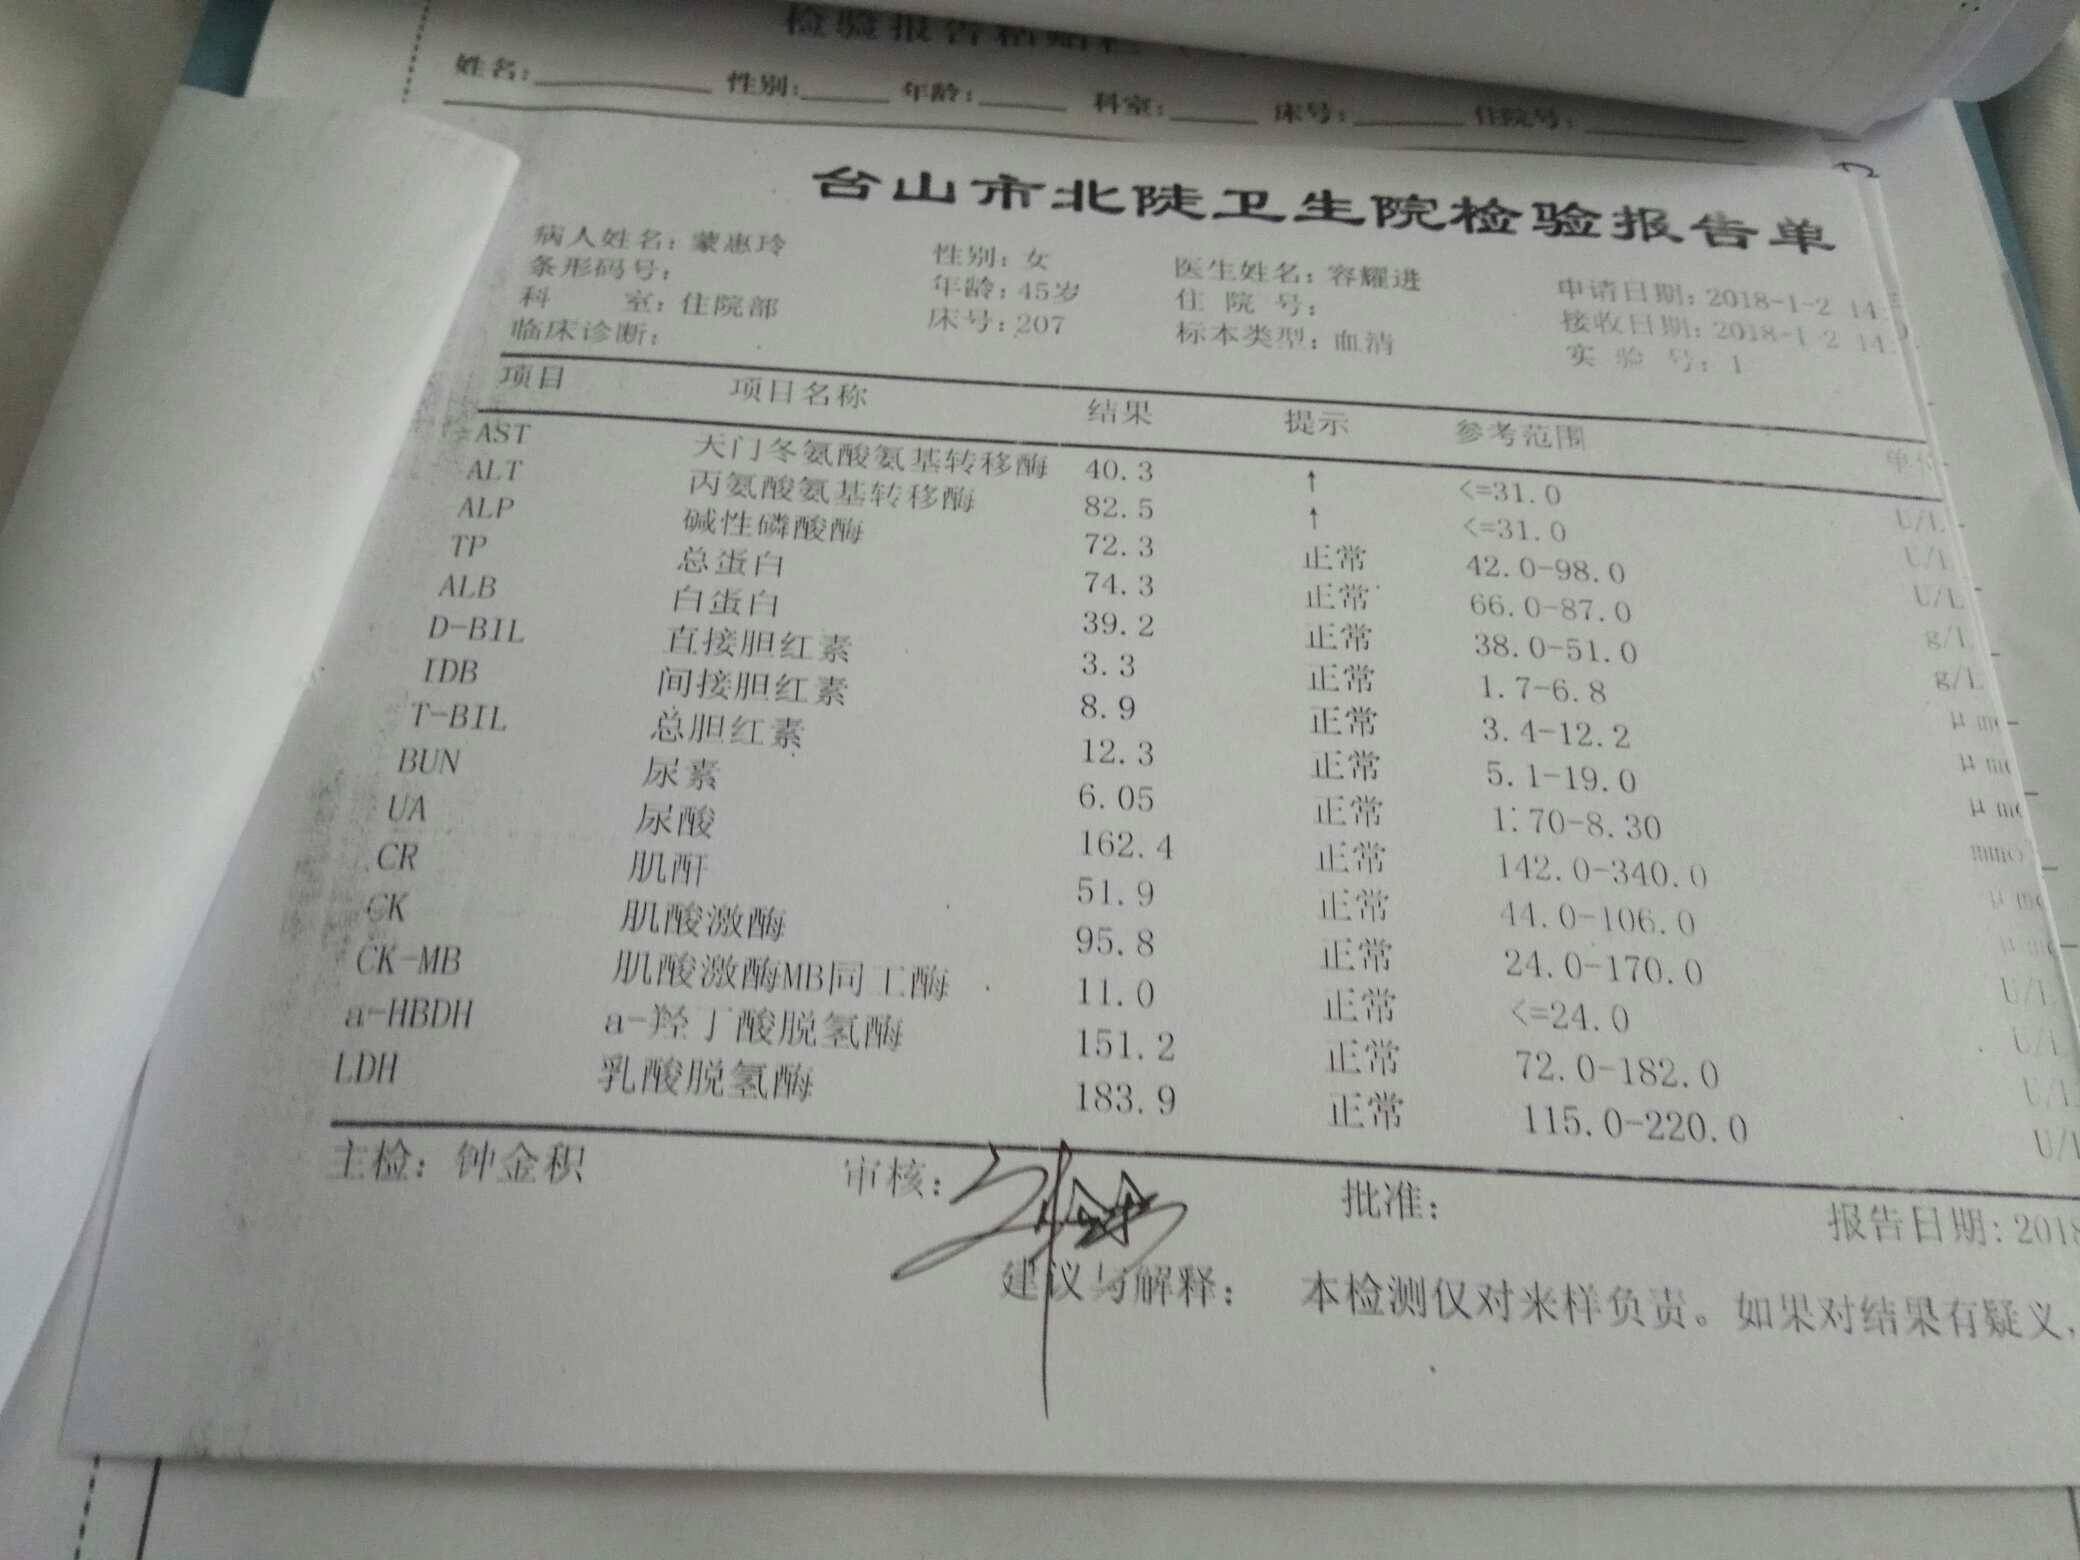 姓名: 性别: 年龄: 科室: 床号: 住院号:
台山市北陡卫生院检验报告单
病人姓名: 蒙惠玲 性别: 女 医生姓名: 容耀进 申请日期: 2018-1-2 14:
条形码号: 年龄: 45岁 住 院 号: 接收日期: 2018-1-2 14:
科 室: 住院部 床号: 207 标本类型: 血清 实 验 号: 1
临床诊断:
项目 项目名称 结果 提示 参考范围 单位
AST 天门冬氨酸氨基转移酶 40.3 ↑ <=31.0 U/L
ALT 丙氨酸氨基转移酶 82.5 ↑ <=31.0 U/L
ALP 碱性磷酸酶 72.3 正常 42.0-98.0 U/L
TP 总蛋白 74.3 正常 66.0-87.0 g/L
ALB 白蛋白 39.2 正常 38.0-51.0 g/L
D-BIL 直接胆红素 3.3 正常 1.7-6.8 μ mo
IDB 间接胆红素 8.9 正常 3.4-12.2 μ mo
T-BIL 总胆红素 12.3 正常 5.1-19.0 μ mo
BUN 尿素 6.05 正常 1.70-8.30 mmo
UA 尿酸 162.4 正常 142.0-340.0 μ mo
CR 肌酐 51.9 正常 44.0-106.0 μ mo
CK 肌酸激酶 95.8 正常 24.0-170.0 U/L
CK-MB 肌酸激酶MB同工酶 11.0 正常 <=24.0 U/L
a-HBDH a-羟丁酸脱氢酶 151.2 正常 72.0-182.0 U/L
LDH 乳酸脱氢酶 183.9 正常 115.0-220.0 U/L
主检: 钟金积 审核: 批准: 报告日期: 2018
建议与解释: 本检测仅对来样负责。如果对结果有疑义,